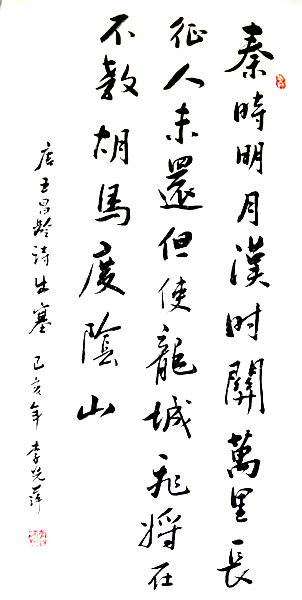 秦時明月漢时關萬里長
征人未還但使龍城飛將在
不教胡馬度陰山
唐王昌齡詩出塞 己亥年 李光萍